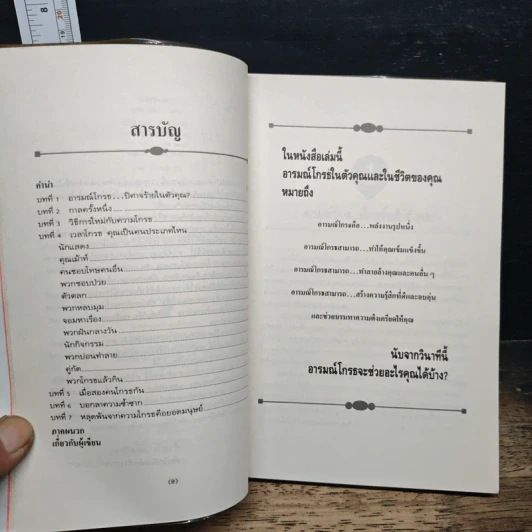 8
20
19
สารบัญ
คำนำ
บทที่ 1 อารมณ์โกรธ...ปีศาจร้ายในตัวคุณ?
บทที่ 2 กาลครั้งหนึ่ง....
บทที่ 3 วิธีการใหม่กับความโกรธ
บทที่ 4 เวลาโกรธ คุณเป็นคนประเภทไหน
นักแสดง
คุณเม้าท์
คนชอบโทษคนอื่น
พวกชอบป่วย
ตัวตลก
พวกหลบมุม
จอมหาเรื่อง
พวกฝันกลางวัน
นักกิจกรรม
พวกบ่อนทำลาย
คู่กัด
พวกโกรธแล้วกิน
บทที่ 5 เมื่อสองคนโกรธกัน
บทที่ 6 บอกลาความซ้ำซาก
บทที่ 7 หลุดพ้นจากความโกรธคือยอดมนุษย์
ภาคผนวก
เกี่ยวกับผู้เขียน
ในหนังสือเล่มนี้
อารมณ์โกรธในตัวคุณและในชีวิตของคุณ
หมายถึง
อารมณ์โกรธคือ...พลังงานรูปหนึ่ง
อารมณ์โกรธสามารถ...ทำให้คุณเข้มแข็งขึ้น
อารมณ์โกรธสามารถ...ทำลายล้างคุณและคนอื่น ๆ
อารมณ์โกรธสามารถ...สร้างความรู้สึกที่ดีและอบอุ่น
และช่วยบรรเทาความตึงเครียดให้คุณ
นับจากวินาทีนี้
อารมณ์โกรธจะช่วยอะไรคุณได้บ้าง?